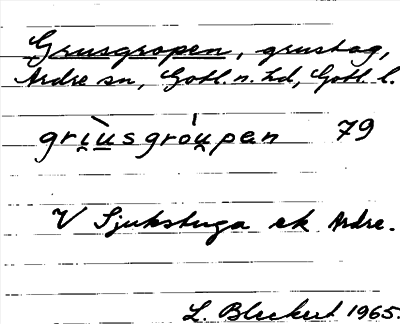 Grusgropen, grustag,
Ardre sn, Gotl. n. hd, Gotl. l.
gri̯ùsgróu̯pen 79
V Sjukstuga ek Ardre.
L. Bleckert 1965.